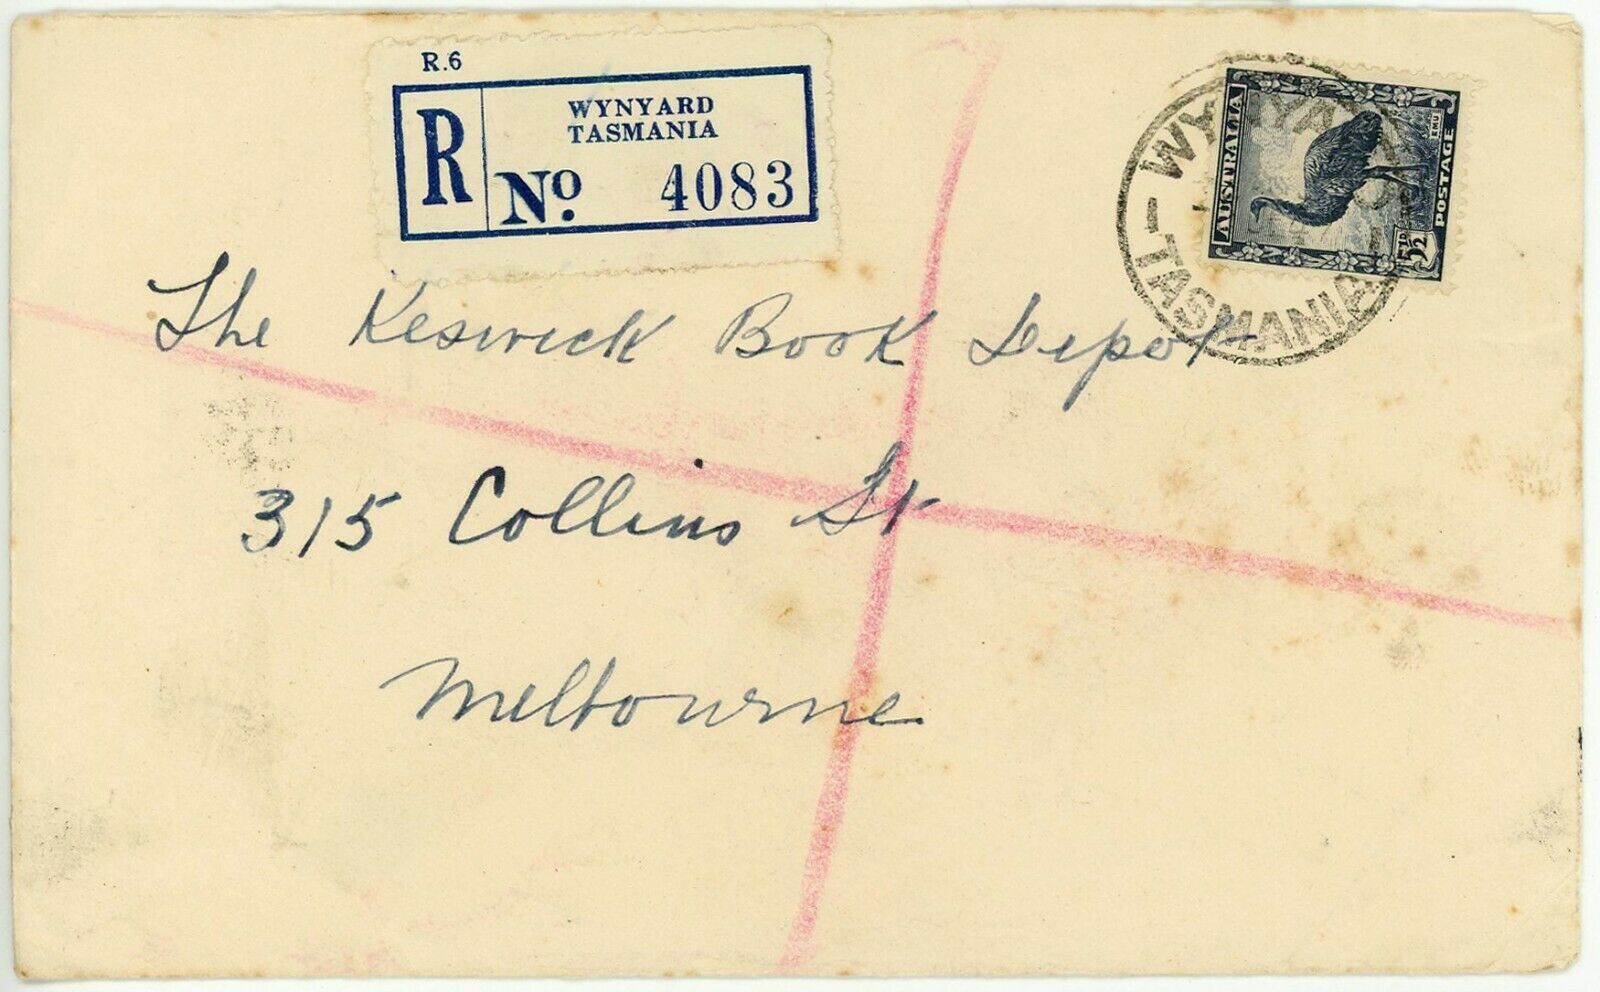 R.6
R
WYNYARD
TASMANIA
No. 4083
WYNYARD
TASMANIA
AUSTRALIA
EMU
POSTAGE
5½D
The Keswick Book Depot
315 Collins St
Melbourne